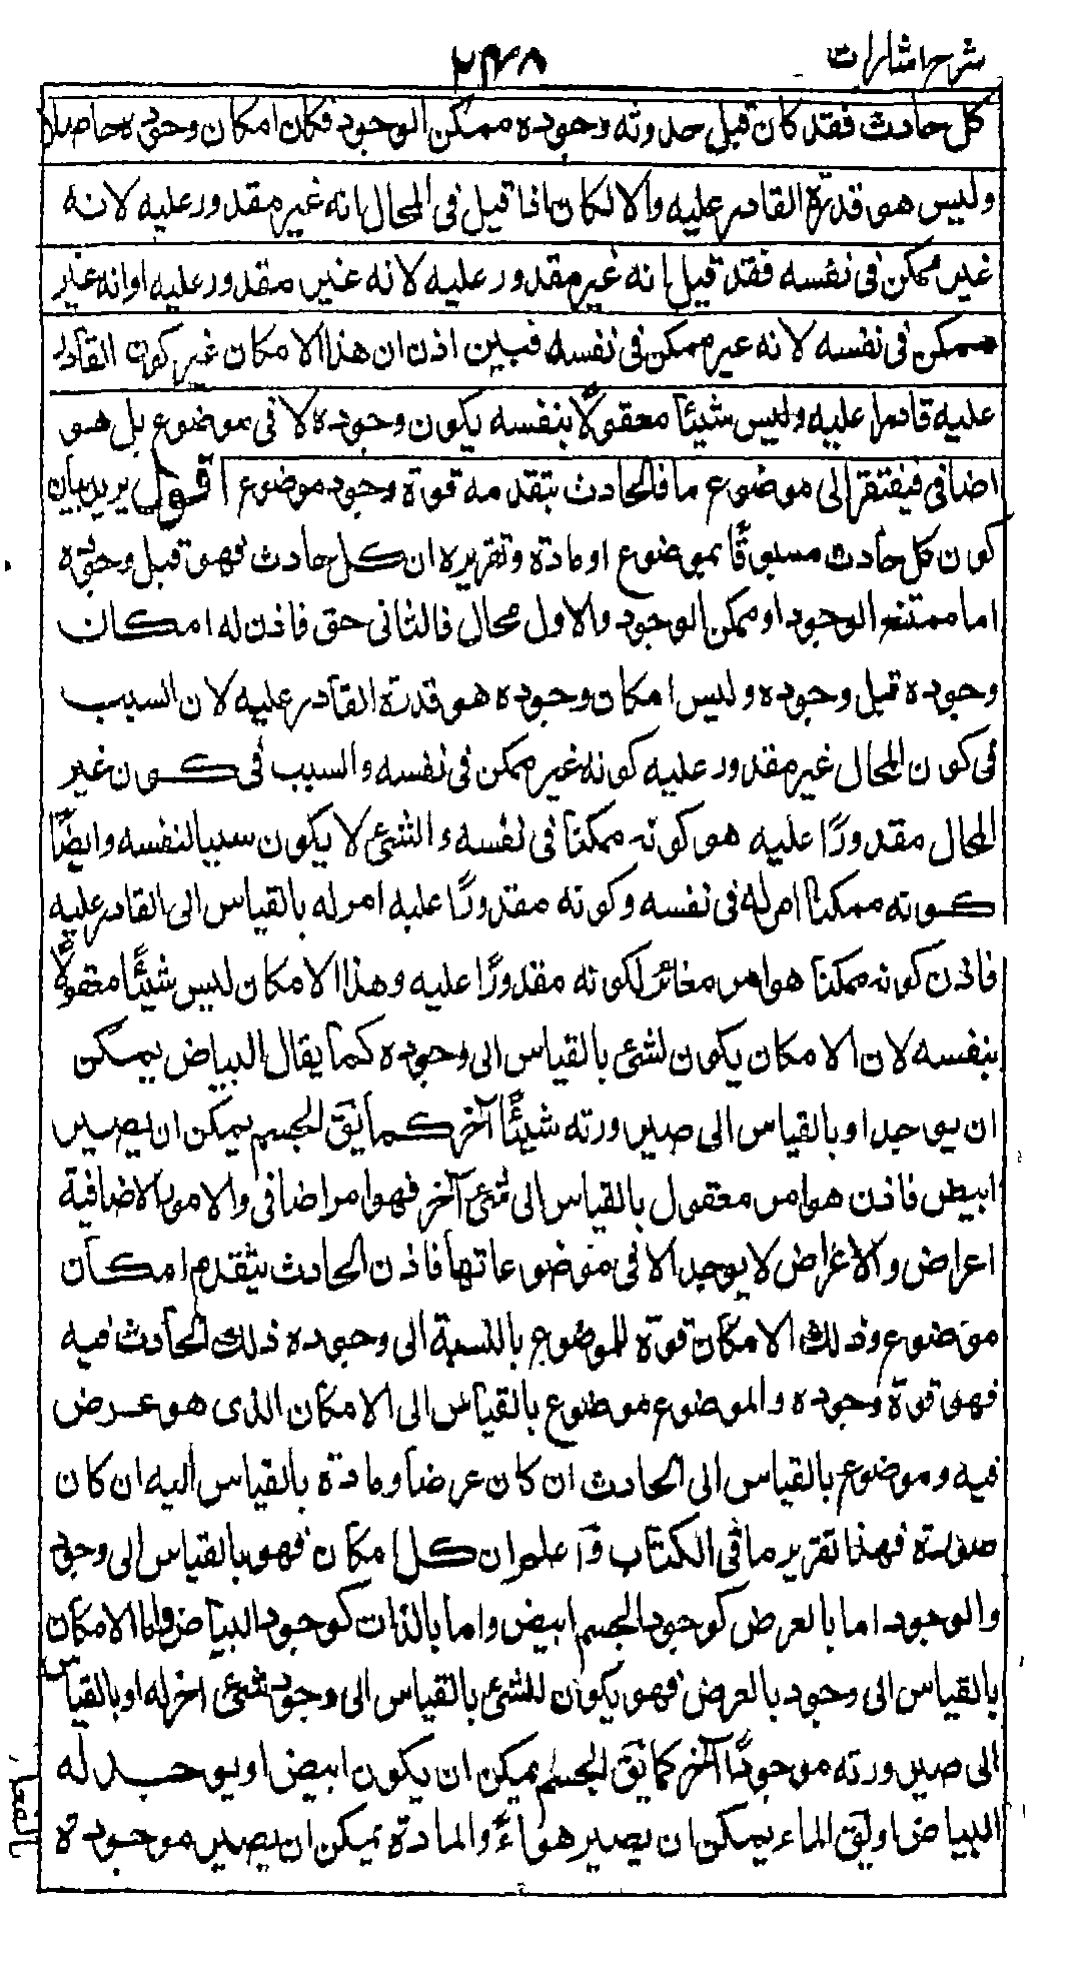 شرح اشارات ٢٣٨
كل حادث فقد كان قبل حدوثه وجوده ممكن الوجود فكان امكان وجوده حاصلا
وليس هو قدرة القادر عليه والا لكان اذا قيل فى المحال انه غير مقدور عليه لانه
غير ممكن فى نفسه فقد قيل انه غير مقدور عليه لانه غير مقدور عليه او انه غير
ممكن فى نفسه لانه غير ممكن فى نفسه فبين اذن ان هذا الامكان غير كون القادر
عليه قادرا عليه وليس شيئاً معقولًا بنفسه يكون وجوده لا فى موضوع بل هو
اضافى فيفتقر الى موضوع ما فالحادث يتقدمه قوة وجود وموضوع اقول يريد بيان
كون كل حادث مسبوقًا بموضوع او مادة وتقريره ان كل حادث فهو قبل وجوده
اما ممتنع الوجود او ممكن الوجود والاول محال فالثانى حق فاذن له امكان
وجوده قبل وجوده وليس امكان وجوده هو قدرة القادر عليه لان السبب
فى كون المحال غير مقدور عليه كونه غير ممكن فى نفسه والسبب فى كون غير
المحال مقدورًا عليه هو كونه ممكناً فى نفسه والشئ لا يكون سببا لنفسه وايضًا
كونه ممكناً امر له فى نفسه وكونه مقدورًا عليه امر له بالقياس الى القادر عليه
فاذن كونه ممكناً هو امر مغائر لكونه مقدورًا عليه وهذا الامكان ليس شيئًا معقولًا
بنفسه لان الامكان يكون لشئ بالقياس الى وجوده كما يقال البياض يمكن
ان يوجد او بالقياس الى صيرورته شيئًا آخر كما يق الجسم يمكن ان يصير
ابيض فاذن هو امر معقول بالقياس الى شئ آخر فهو امر اضافى والامور الاضافية
اعراض والاعراض لا يوجد الا فى موضوعاتها فاذن الحادث يتقدم امكان
موضوع وذلك الامكان قوة للموضوع بالنسبة الى وجوده ذلك الحادث فيه
فهو قوة وجوده والموضوع موضوع بالقياس الى الامكان الذى هو عرض
فيه وموضوع بالقياس الى الحادث ان كان عرضا ومادة بالقياس اليه ان كان
صورة فهذا تقرير ما فى الكتاب واعلم ان كل امكان فهو بالقياس الى وجود
والوجود اما بالعرض كوجود الجسم ابيض واما بالذات كوجود البياض واما الامكان
بالقياس الى وجود بالعرض فهو يكون للشئ بالقياس الى وجود شئ اخر له او بالقياس
الى صيرورته موجودًا آخر كما يق الجسم يمكن ان يكون ابيض او يوجد له
البياض او يق الماء يمكن ان يصير هواءً والمادة يمكن ان يصير موجودة
بالفعل